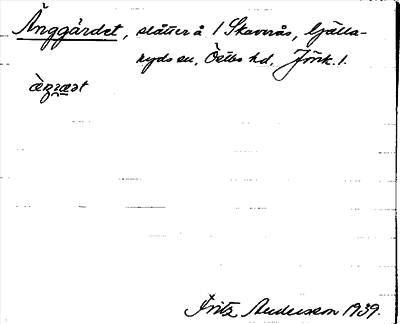 Änggärdet, slåtter å 1 Skaverås, Gjälla-
ryds sn. Östbo hd. Jönk. l.
Fritz Anderson 1939.